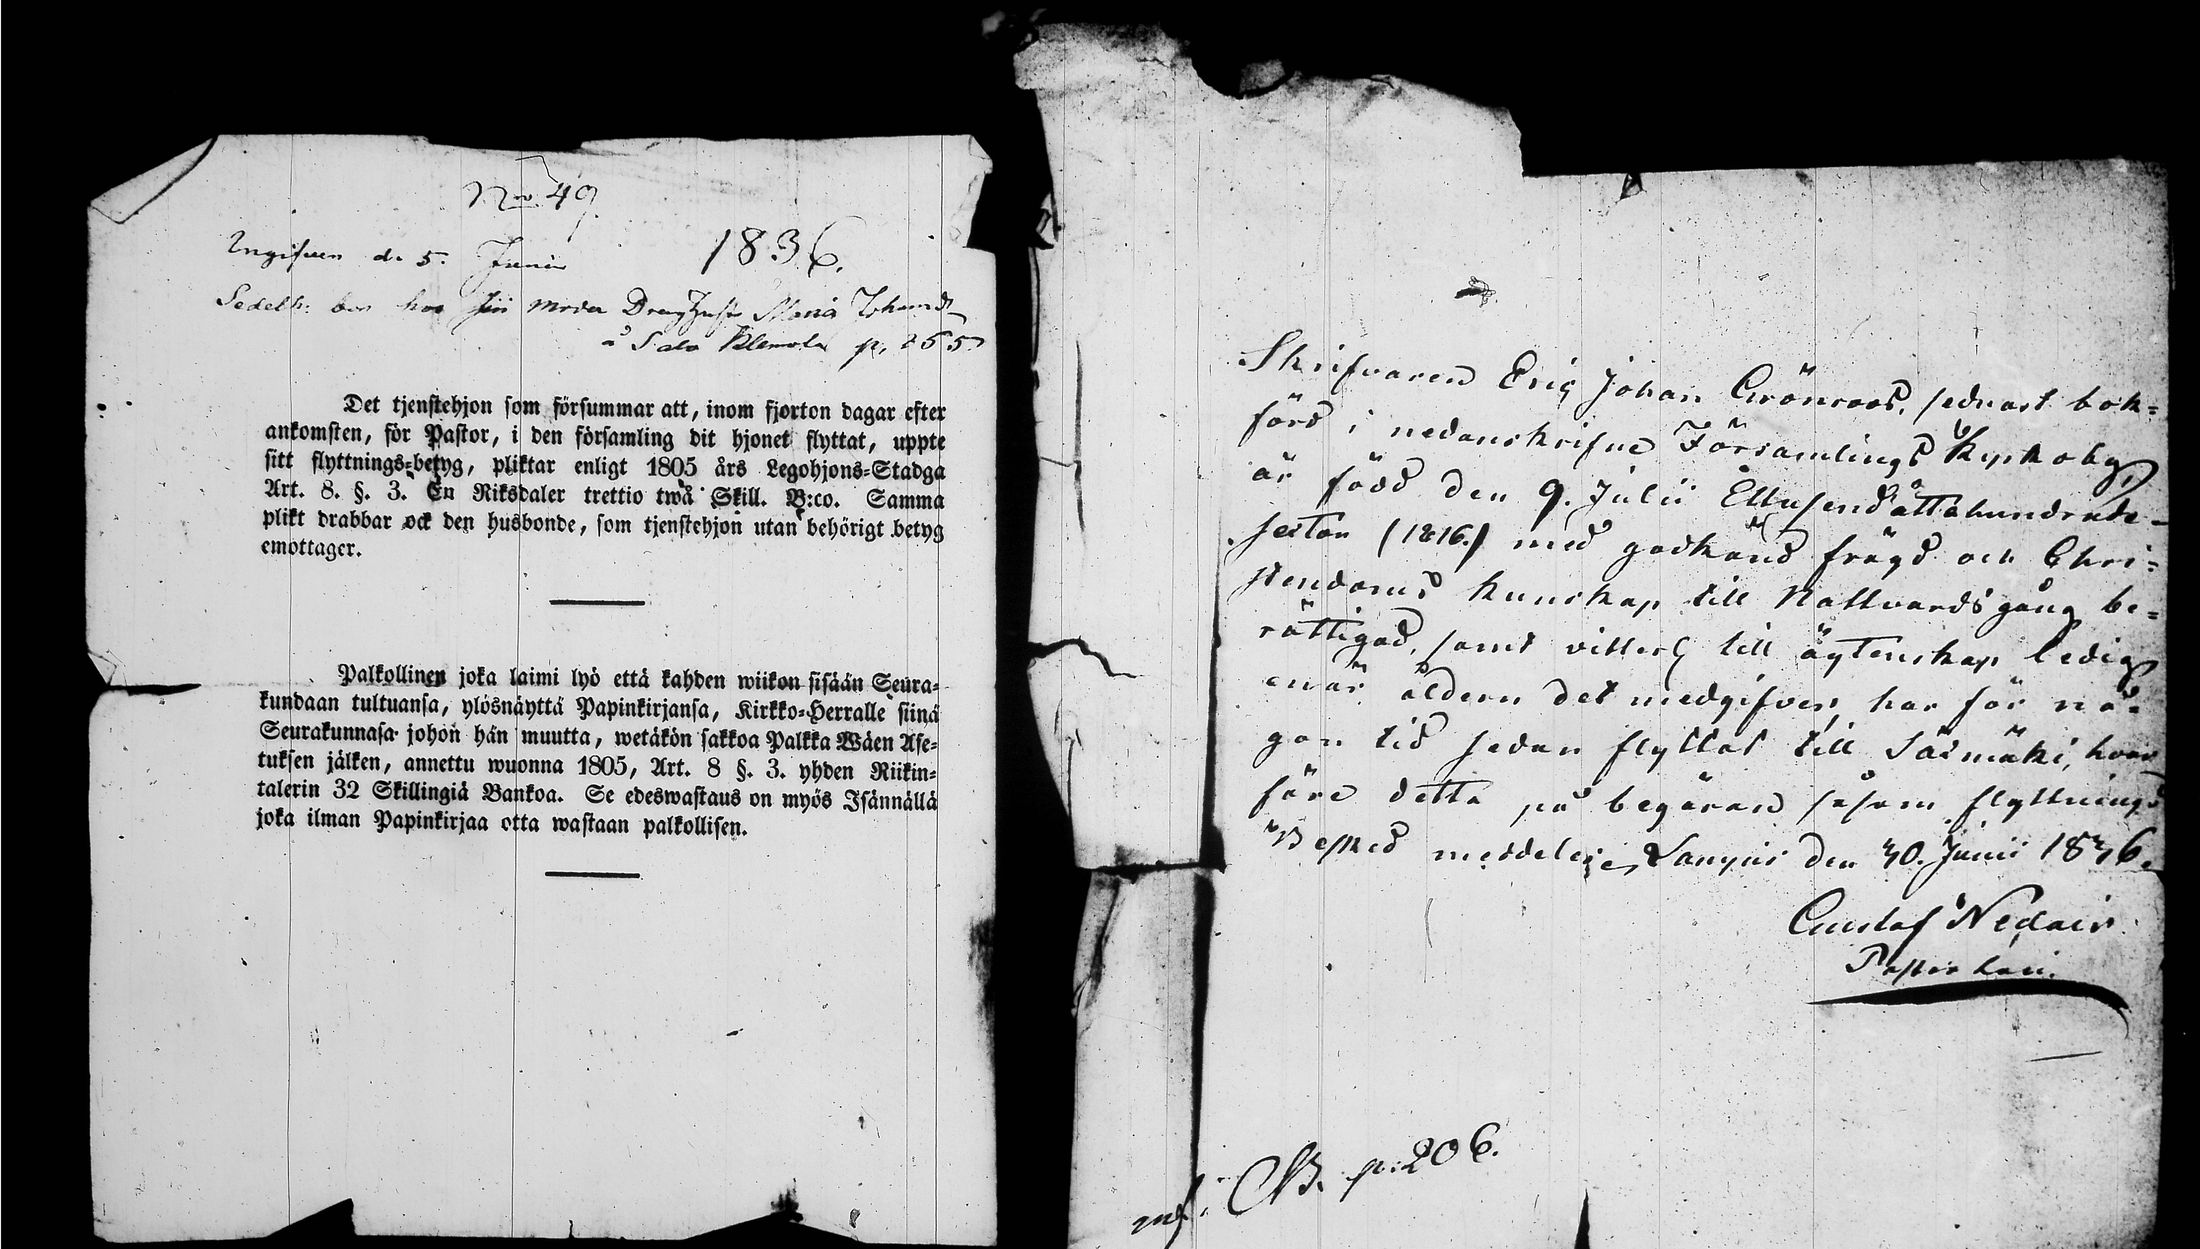 Nro 49
1836.
Ingifven d. 5. Junii
Sedelh: bor hos sin moder Maria
å Salo Klemola p. 265
Det tjenstehjon som försummar att, inom fjorton dagar efter
ankomsten, för Pastor, i den församling dit hjonet flyttat, uppte
sitt flyttnings-betyg, pliktar enligt 1805 års Legohjons-Stadga
Art. 8. §. 3. En Riksdaler trettio twå Skill. B:co. Samma
plikt drabbar ock den husbonde, som tjenstehjon utan behörigt betyg
emottager.
Palkollinen joka laimi lyö että kahden wiikon sisään Seura-
kundaan tultuansa, ylösnäyttä Papinkirjansa, Kirkko-Herralle siinä
Seurakunnasa johon hän muutta, wetäkön sakkoa Palkka Wäen Ase-
tuksen jälken, annettu wuonna 1805, Art. 8 §. 3. yhden Riikin-
talerin 32 Skillingiä Bankoa. Se edeswastaus on myös Isännällä
joka ilman Papinkirjaa otta wastaan palkollisen.
Skrifvaren Eric Johan Grönroos, sednast bok=
förd i nedanskrifne Församlings Kyrkoby
är född den 9. Julii Ettusend åttahundrade
sexton (1816.) med godkänd frägd och Chri=
stendoms kunskap till Nattvardsgång be=
rättigad, samt vitterl till ägtenskap ledig
enär åldern det medgifver, har för nå=
gon tid sedan flyttat till Säxmäki, hvar
före detta på begäran såsom flyttnings
Besked meddelas, Sanguis den 30. Junii 1836.
Gustaf Nedair
Pastor
inf. i CB. p: 206.